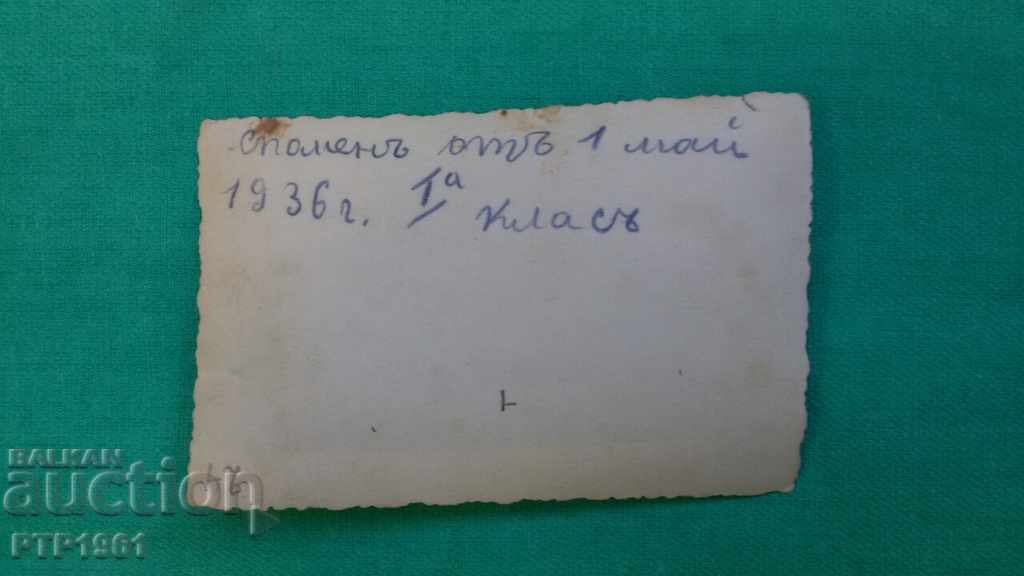 споменъ отъ 1 май
1936г. Iа класъ
BALKAN
auction
PTP1961